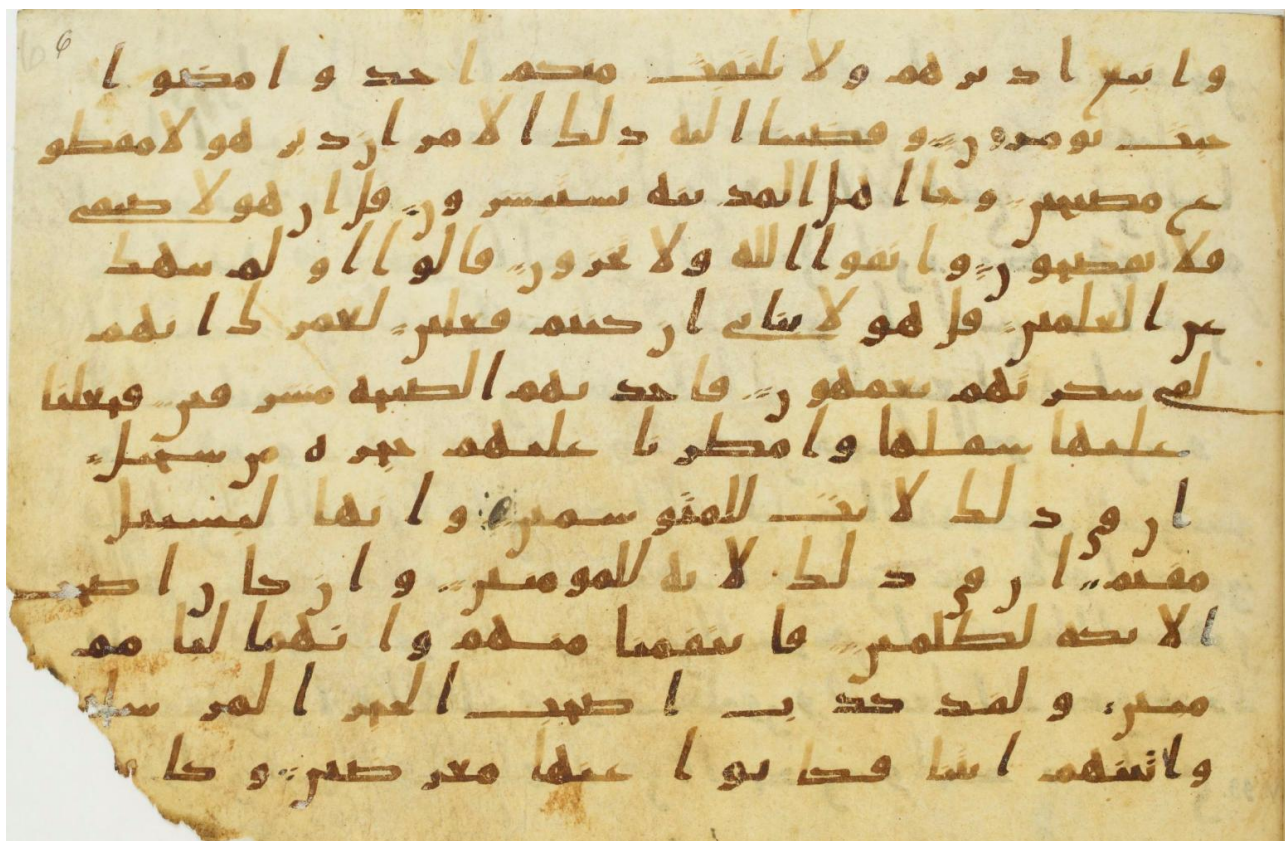 واتبع ادبرهم ولا يلتفت منكم احد وامضوا
حيث تومرون وقضينا اليه ذلك الامر ان دبر هولا مقطو
ع مصبحين وجا اهل المدينة يستبشرون قل ان هولا ضيفي
فلا تفضحون واتقوا الله ولا تخزون قالوا اولم ننهك
عن العلمين قل هولا بناتي ان كنتم فعلين لعمرك انهم
لفي سكرتهم يعمهون فاخذتهم الصيحة مشرقين فجعلنا
عليها سفلها وامطرنا عليهم حجرة من سجيل
ان في ذلك لايت للمتوسمين وانها لبسبيل
مقيم ان في ذلك لاية للمومنين وان كان اصحب
الايكة لظلمين فانتقمنا منهم وانهما لبامم
مبين ولقد كذب اصحب الحجر المرسلـ
واتينهم ايتنا فكانوا عنها معرضين وكا